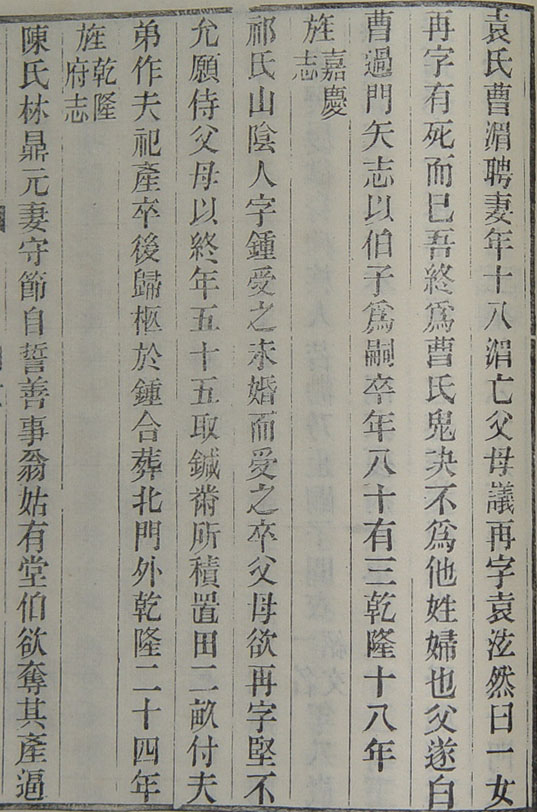 袁氏曹湄聘妻年十八湄亡父母議再字袁泫然曰一女
再字有死而已吾終為曹氏鬼決不為他姓婦也父遂白
曹過門矢志以伯子為嗣卒年八十有三乾隆十八年
旌嘉慶志
祁氏山陰人字鍾受之未婚而受之卒父母欲再字堅不
允願侍父母以終年五十五取鍼黹所積置田二畝付夫
弟作夫祀產卒後歸柩於鍾合葬北門外乾隆二十四年
旌乾隆府志
陳氏林鼎元妻守節自誓善事翁姑有堂伯欲奪其產逼